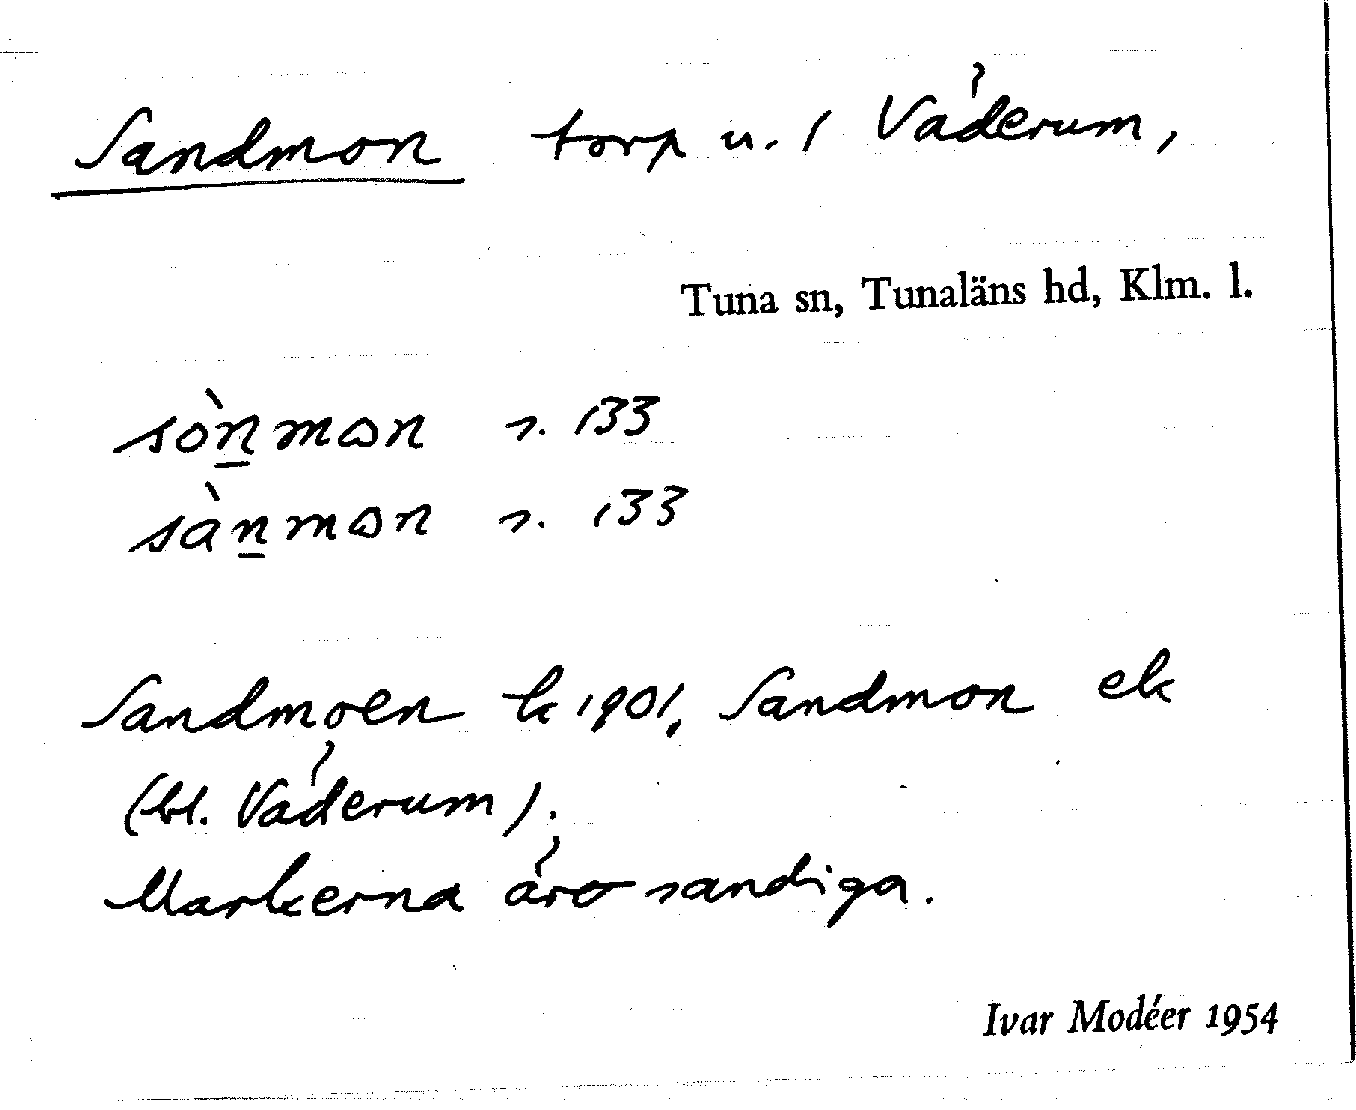 Sandmon torp u. / Väderum,
Tuna sn, Tunaläns hd, Klm. l.
sòn̲mɷn s. 133
sàn̲mɷn s. 133
Sandmoen k 1901, Sandmon ek
(bl. Väderum).
Markerna äro sandiga.
Ivar Modéer 1954